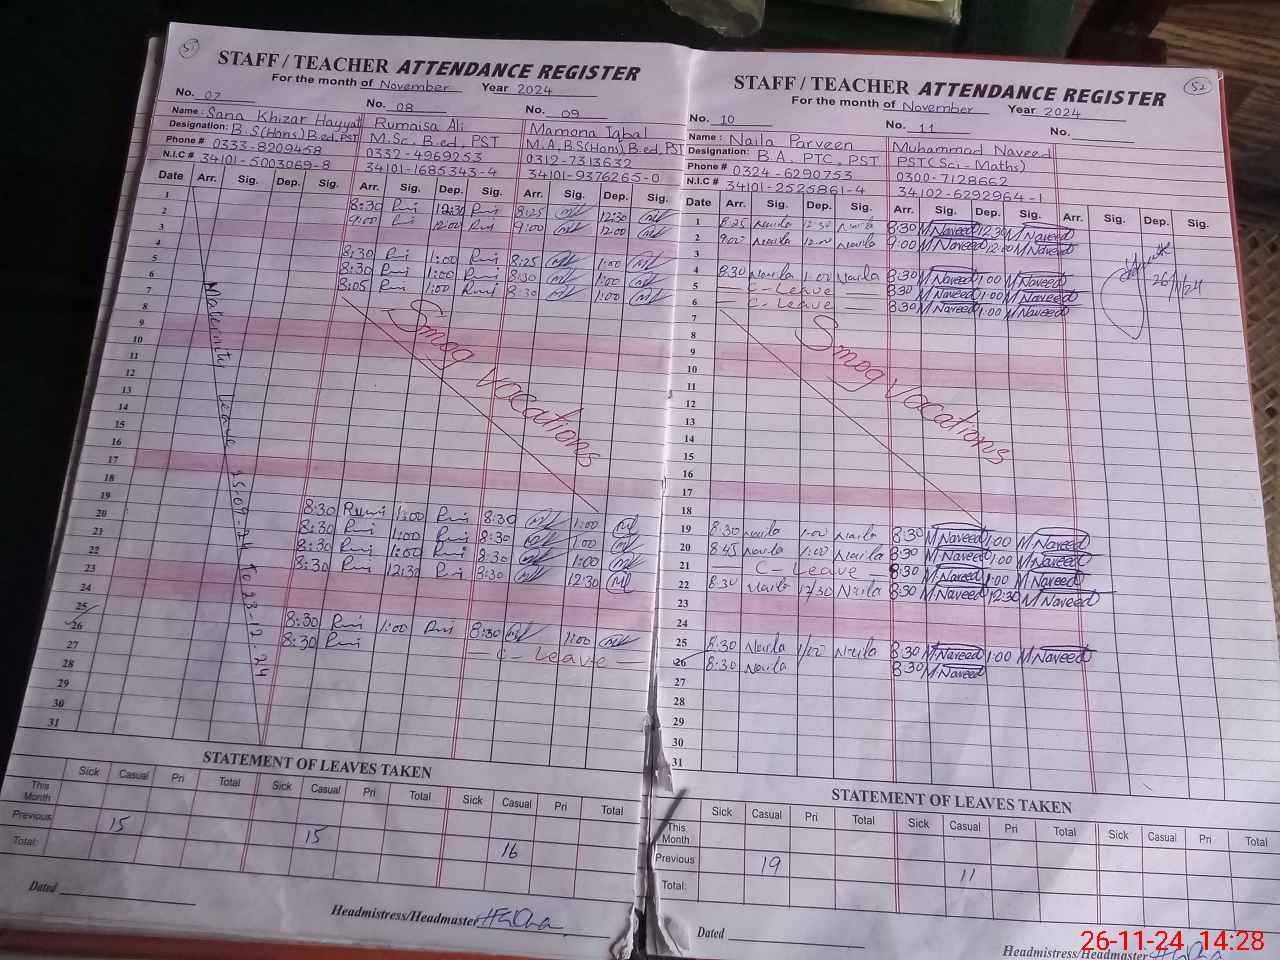 51
STAFF / TEACHER ATTENDANCE REGISTER
For the month of November Year 2024
No. 07 No. 08 No. 09
Name: Sana Khizar Hayyat Rumaisa Ali Mamona Iqbal
Designation: B.S(Hons) B.ed, PST M.Sc. B.ed, PST M.A, B.S(Hons) B.ed, PST
Phone # 0333-8209458 0332-4969253 0312-7313632
N.I.C # 34101-5003069-8 34101-1685343-4 34101-9376265-0
Date Arr. Sig. Dep. Sig. Arr. Sig. Dep. Sig. Arr. Sig. Dep. Sig.
1 8:30 Rui 12:30 Rui 8:25 12:30
2 9:00 Rui 12:00 Rui 9:00 12:00
3
4 8:30 Rui 1:00 Rui 8:25 1:00
5 8:30 Rui 1:00 Rui 8:30 1:00
6 8:05 Rui 1:00 Rui 8:30 1:00
7
8
9
10
11
12
13
14
15
16
17
18
19 8:30 Rumi 1:00 Rui 8:30 1:00
20 8:30 Rui 1:00 Rui 8:30 1:00
21 8:30 Rui 1:00 Rui 8:30 1:00
22 8:30 Rui 12:30 Rui 8:30 12:30
23
24
25 8:30 Rui 1:00 Rui 8:30 1:00
26 8:30 Rui — C-Leave —
27
28
29
30
31
Maternity Leave 25-09-24 To 23-12-24
Smog Vacations
STATEMENT OF LEAVES TAKEN
Sick Casual Pri Total Sick Casual Pri Total Sick Casual Pri Total
This Month
Previous 15 15 16
Total:
Dated
Headmistress/Headmaster
52
STAFF / TEACHER ATTENDANCE REGISTER
For the month of November Year 2024
No. 10 No. 11 No.
Name: Naila Parveen Muhammad Naveed
Designation: B.A, PTC, PST PST(Sci-Maths)
Phone # 0324-6290753 0300-7128662
N.I.C # 34101-2525861-4 34102-6292964-1
Date Arr. Sig. Dep. Sig. Arr. Sig. Dep. Sig. Arr. Sig. Dep. Sig.
1 8:25 Naila 12:30 Naila 8:30 M Naveed 12:30 M Naveed
2 9:00 Naila 12:00 Naila 9:00 M Naveed 12:00 M Naveed
3
4 8:30 Naila 1:00 Naila 8:30 M Naveed 1:00 M Naveed
5 — C-Leave — 8:30 M Naveed 1:00 M Naveed
6 — C-Leave — 8:30 M Naveed 1:00 M Naveed
7
8
9
10
11
12
13
14
15
16
17
18
19 8:30 Naila 1:00 Naila 8:30 M Naveed 1:00 M Naveed
20 8:45 Naila 1:00 Naila 8:30 M Naveed 1:00 M Naveed
21 — C-Leave — 8:30 M Naveed 1:00 M Naveed
22 8:30 Naila 12:30 Naila 8:30 M Naveed 12:30 M Naveed
23
24
25 8:30 Naila 1:00 Naila 8:30 M Naveed 1:00 M Naveed
26 8:30 Naila 8:30 M Naveed
27
28
29
30
31
Smog Vacations
26/11/24
STATEMENT OF LEAVES TAKEN
Sick Casual Pri Total Sick Casual Pri Total Sick Casual Pri Total
This Month
Previous 19 11
Total:
Dated
Headmistress/Headmaster
26-11-24 14:28